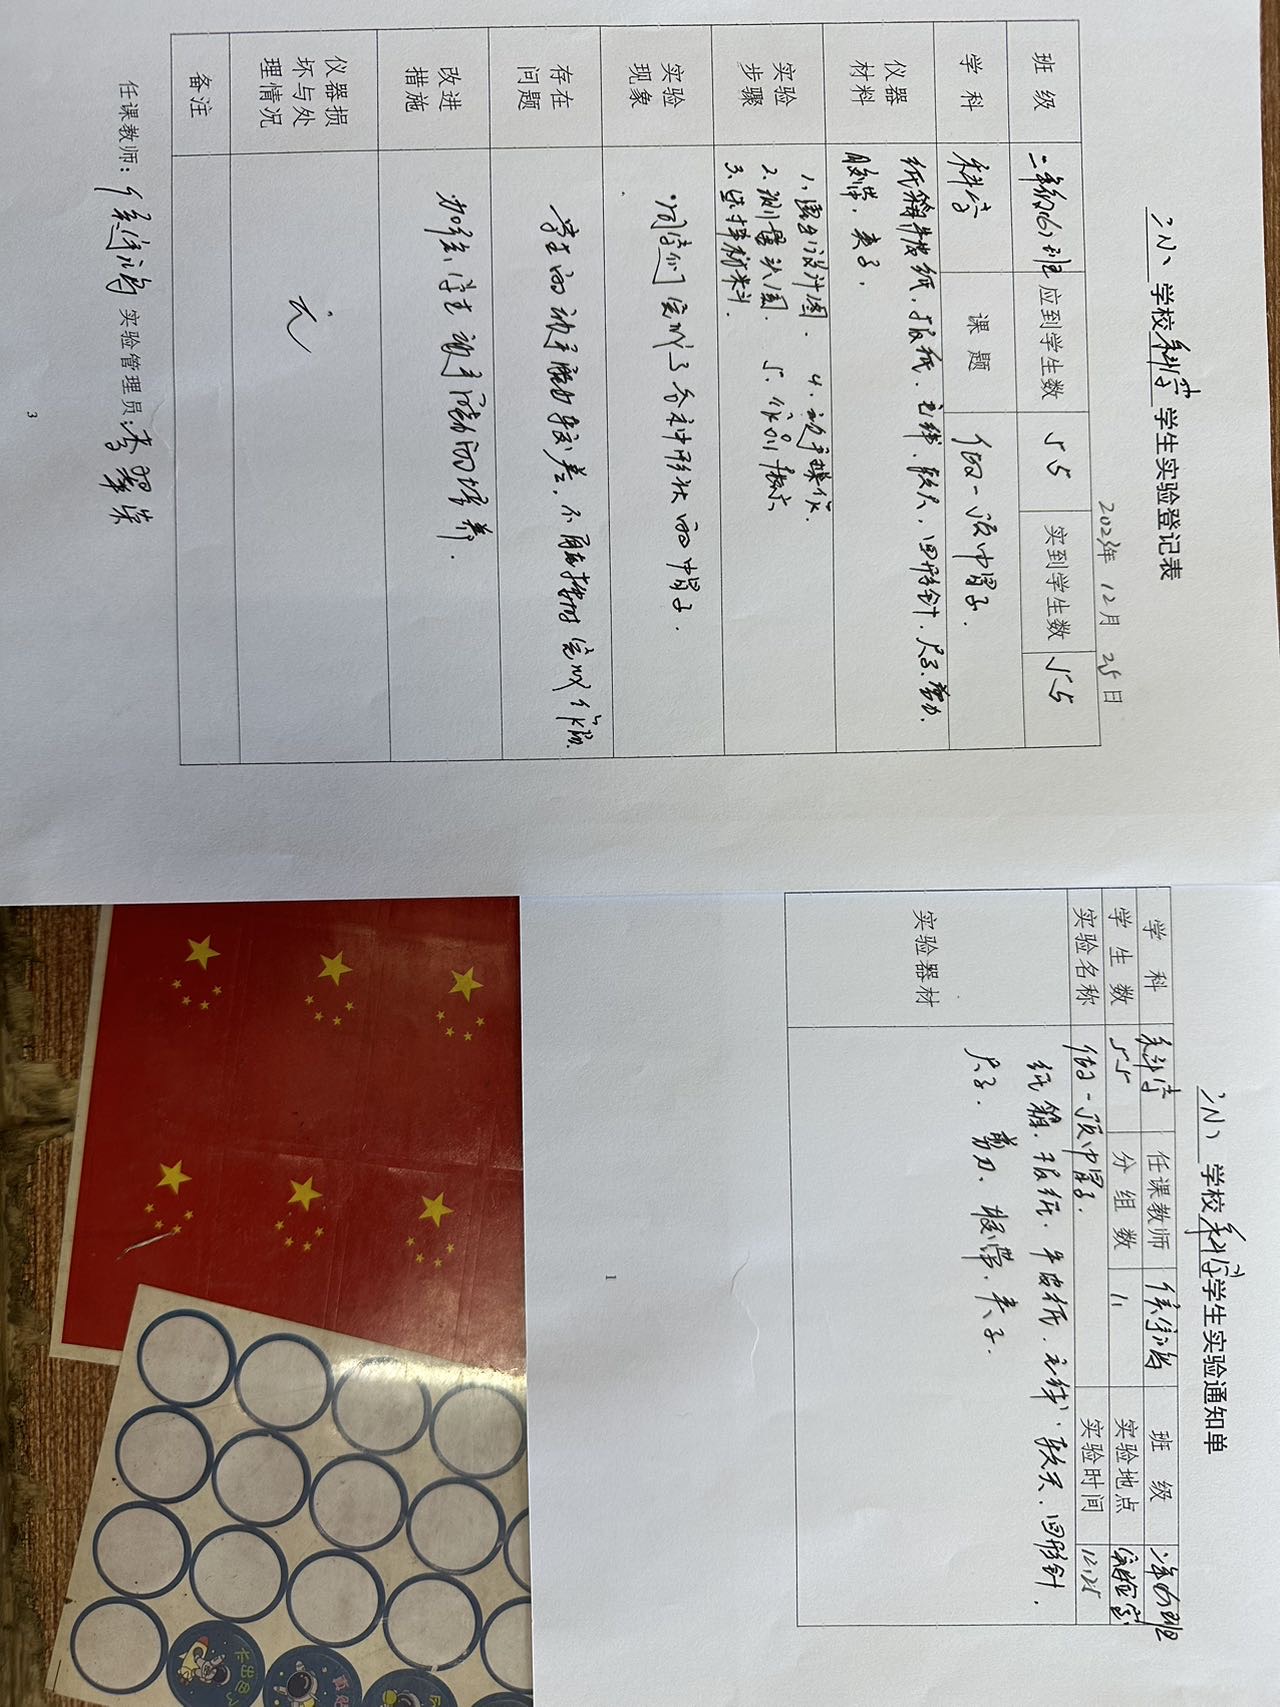 学校科学学生实验登记表
2023年 12月 25日
班 级 二年级(6)班 应到学生数 55 实到学生数 55
学 科 科学 课 题 做一顶帽子.
仪器材料 纸箱牛皮纸、报纸、毛线、软尺、回形针、尺子、剪刀、
胶带、夹子.
实验步骤 1、画出设计图. 4、动手操作.
2、测量头围. 5、作品展示
3、选择材料.
实验现象 同学们完成了各种形状的帽子.
存在问题 学生的动手能力较差、不能按时完成作品.
改进措施 加强学生动手活动的培养.
仪器损坏与处理情况 无
备注
任课教师: 实验管理员:
3
学校科学学生实验通知单
学 科 科学 任课教师 班 级
学 生 数 55 分 组 数 11 实验地点 实验室
实验名称 做一顶帽子. 实验时间 12.25
实验器材 纸箱、报纸、牛皮纸、毛线、软尺、回形针、
尺子、剪刀、胶带、夹子.
1